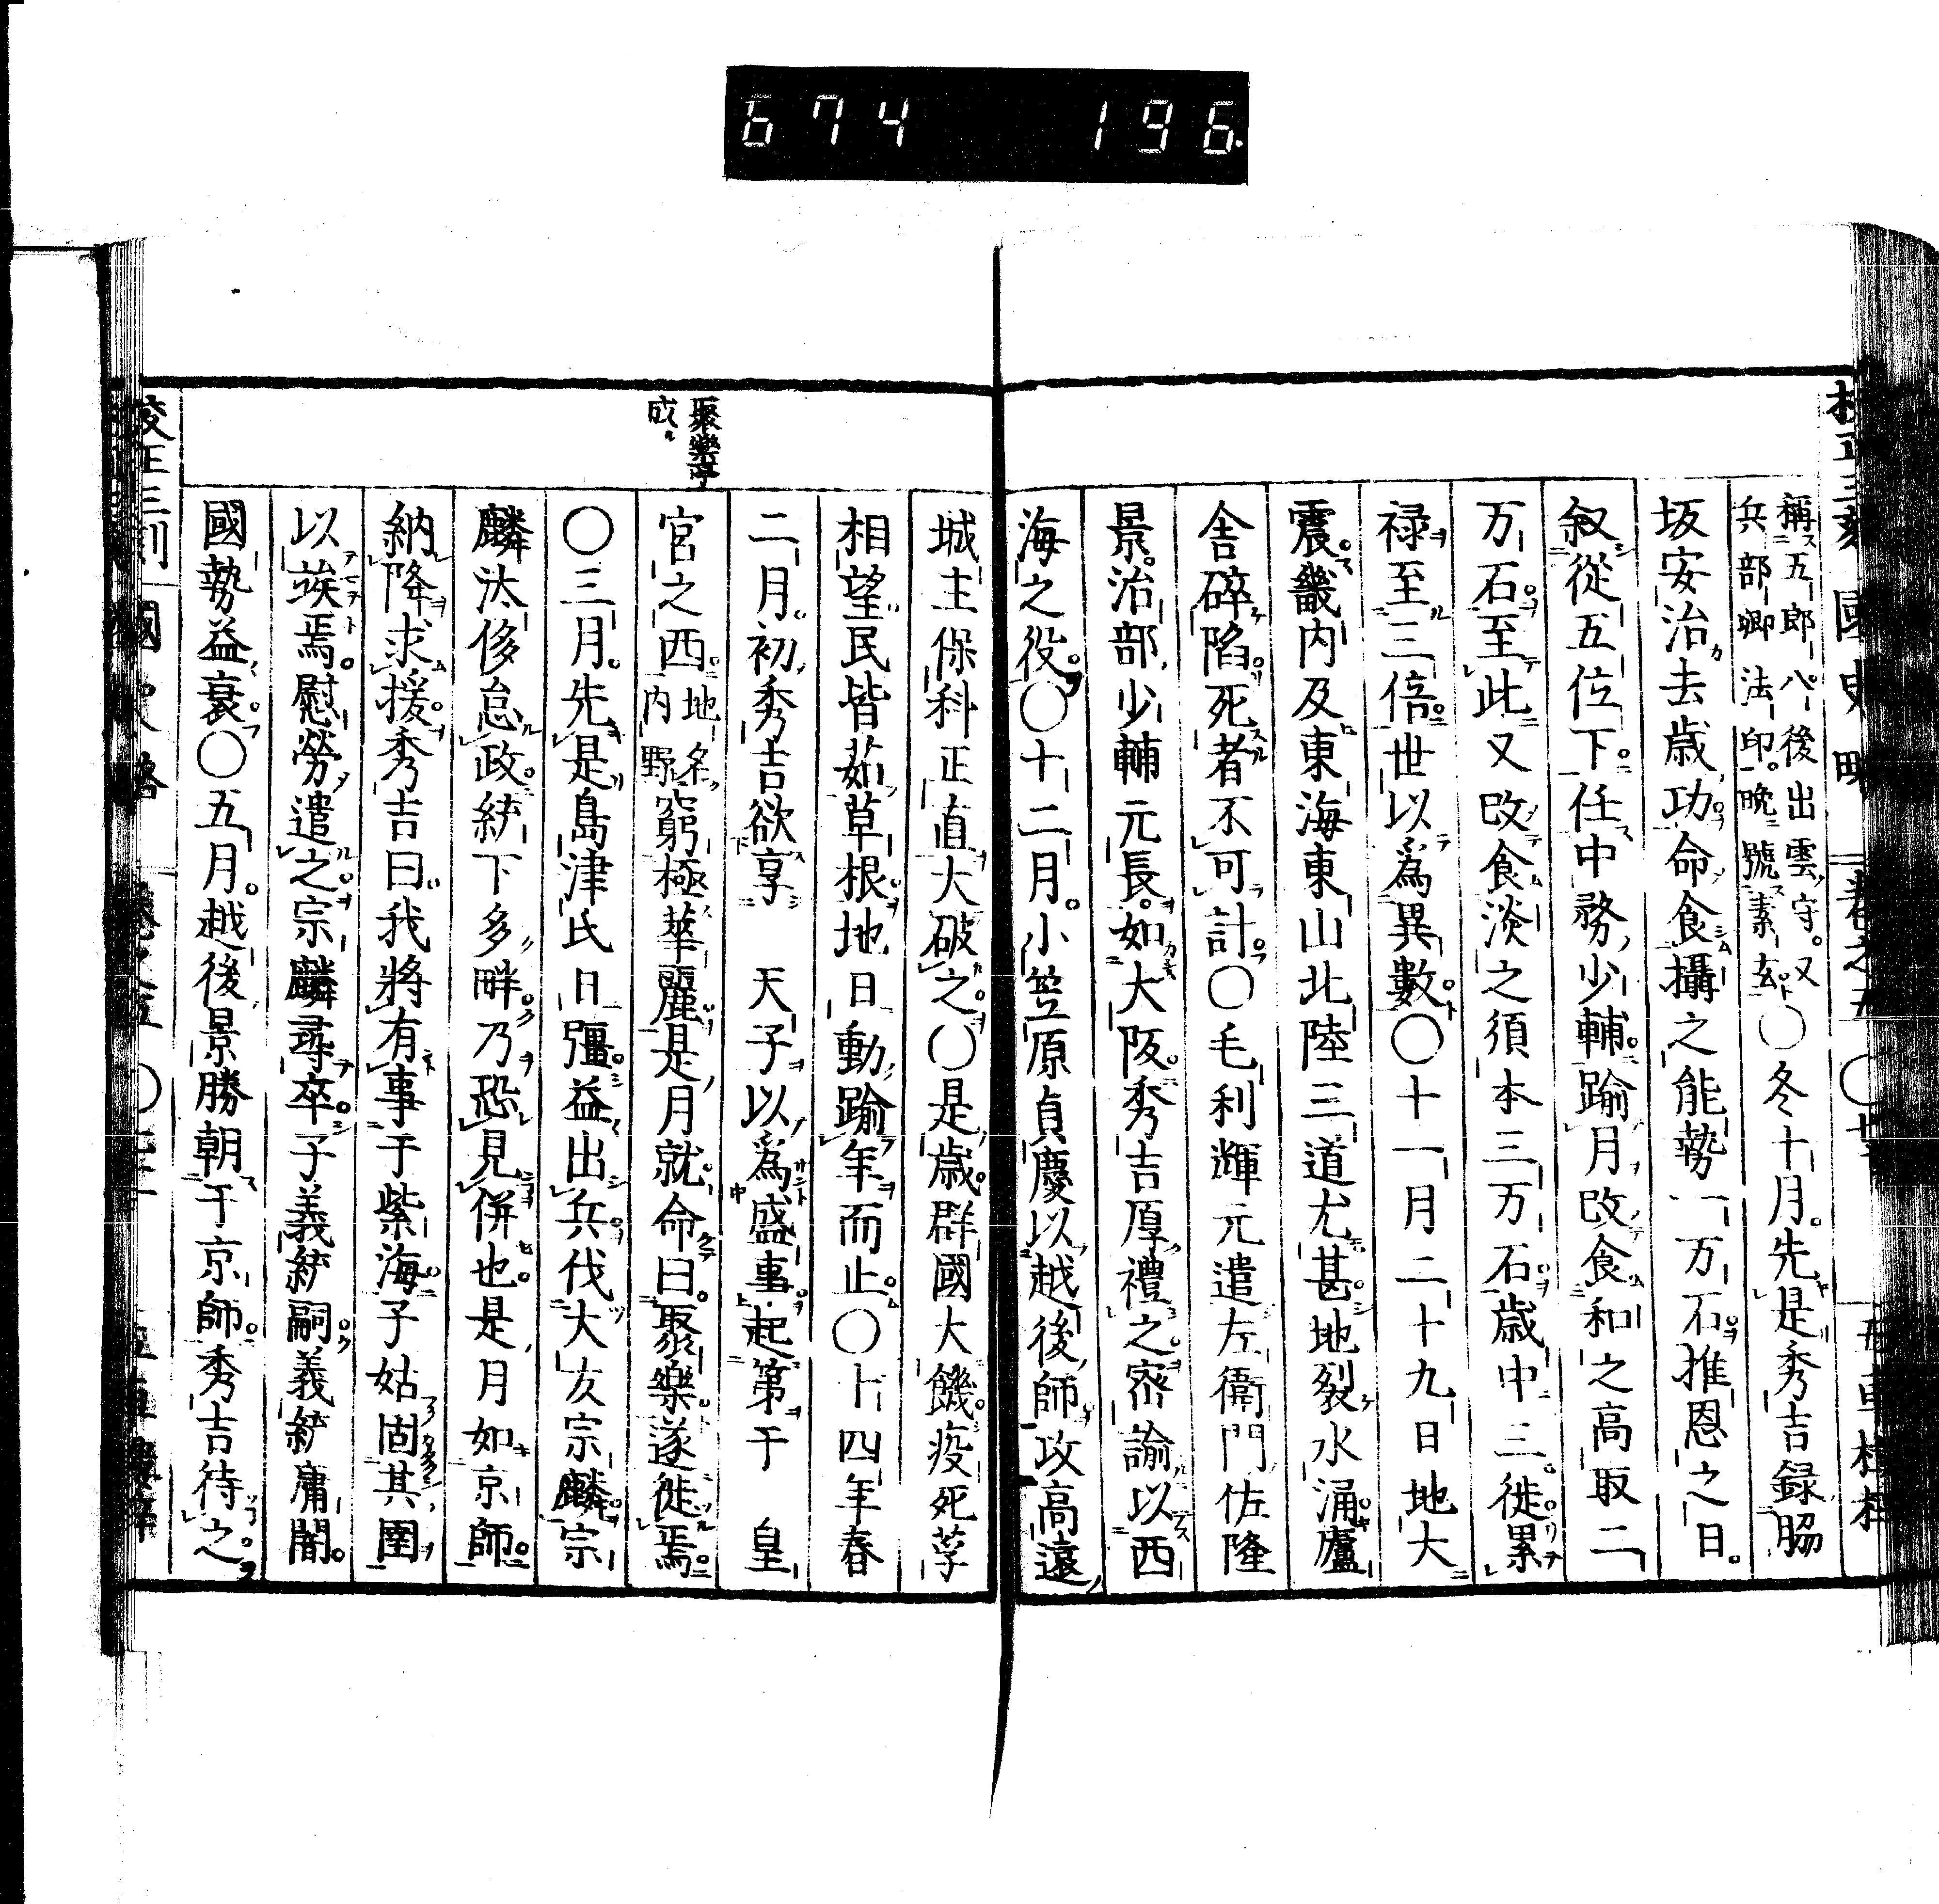 674 196
國史略
稱五郎八後出雲守又
兵部卿法印晩號素玄〇冬十月先是秀吉録脇
坂安治去歳功命食攝之能勢一万石推恩之日
叙從五位下任中務少輔踰月改食和之高取二
万石至此又改食淡之須本三万石歳中三徙累
禄至三倍世以爲異數〇十一月二十九日地大
震畿内及東海東山北陸三道尤甚地裂水涌廬
舎碎陷死者不可計〇毛利輝元遣左衞門佐隆
景治部少輔元長如大阪秀吉厚禮之密諭以西
海之役〇十二月小笠原貞慶以越後師攻高遠
城主保科正直大破之〇是歳群國大饑疫死莩
相望民皆茹草根地日動踰年而止〇十四年春
二月初秀吉欲享　天子以爲盛事起第于　皇
聚樂亭
成
宮之西地名内野窮極華麗是月就命曰聚樂遂徙焉
〇三月先是島津氏日彊益出兵伐大友宗麟宗
麟汰侈怠政統下多畔乃恐見併也是月如京師
納降求援秀吉曰我將有事于紫海子姑固其圉
以竢焉慰勞遣之宗麟尋卒子義統嗣義統庸闇
國勢益衰〇五月越後景勝朝于京師秀吉待之
校正三刻